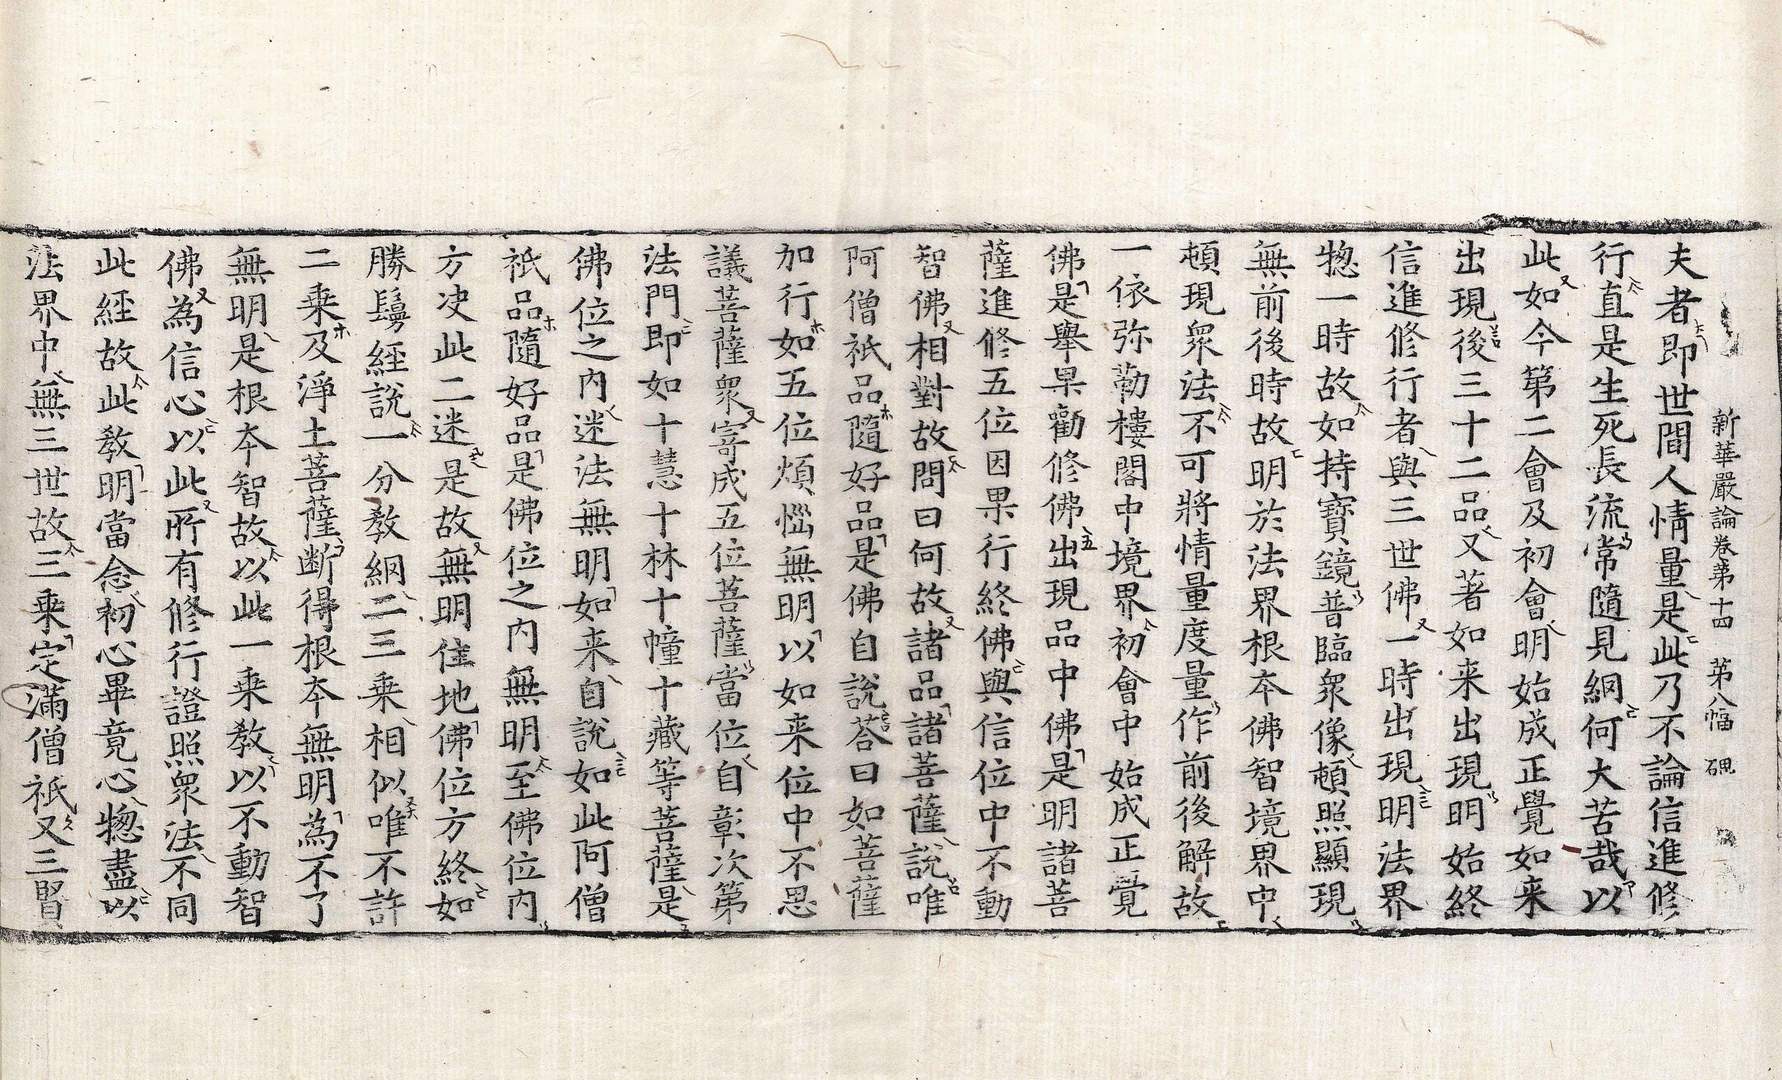 新華嚴論卷第十四 第八幅 硯
夫者即世間人情量是此乃不論信進修
行直是生死長流常隨見網何大苦哉以
此如今第二會及初會明始成正覺如来
出現後三十二品又著如来出現明始終
信進修行者與三世佛一時出現明法界
揔一時故如持寶鏡普臨衆像頓照顯現
無前後時故明於法界根夲佛智境界中
頓現衆法不可將情量度量作前後解故
一依弥勒樓閣中境界初會中始成正覺
佛是舉果勸修佛出現品中佛是明諸菩
薩進修五位因果行終佛與信位中不動
智佛相對故問曰何故諸品諸菩薩說唯
阿僧祇品隨好品是佛自說荅曰如菩薩
加行如五位煩惱無明以如来位中不思
議菩薩衆寄成五位菩薩當位自彰次第
法門即如十慧十林十幢十藏等菩薩是
佛位之內迷法無明如来自說如此阿僧
祇品隨好品是佛位之內無明至佛位內
方决此二迷是故無明住地佛位方終如
勝鬘經說一分教網二三乗相似唯不許
二乗及淨土菩薩斷得根夲無明為不了
無明是根夲智故以此一乗教以不動智
佛為信心以此所有修行證照衆法不同
此經故此教明當念初心畢竟心揔盡以
法界中無三世故三乗定滿僧祇又三賢